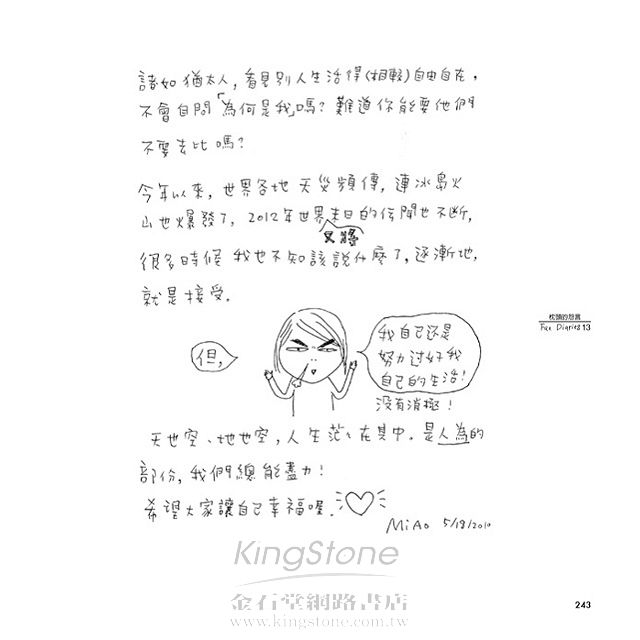 諸如猶太人，看見別人生活得(相較)自由自在，
不會自問「為何是我」嗎？難道你能要他們
不要去比嗎？
今年以來，世界各地天災頻傳，連冰島火
山也爆發了，2012年世界末日的傳聞也不斷，
又將
很多時候我也不知該說什麼了，逐漸地，
就是接受。
但，
我自己还是
努力过好我
自己的生活！
沒有消極！
天也空、地也空，人生茫茫在其中。是人為的
部份，我們總能盡力！
希望大家讓自己幸福喔。
MiAo 5/18/2010
枕頭的怨言
Fee Diaries 13
KingStone
金石堂網路書店
www.kingstone.com.tw
243